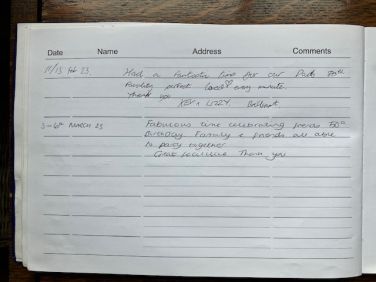 Date Name Address Comments
Feb 23. Had a fantastic time for our Dads 70th
Facility perfect loved every minute.
Thank you
KEV & LIZZY. Brilliant
3-6th MARCH 23 Fabulous time celebrating friends 50th
Birthday. Family & friends all able
to party together
Great facilities Thank you